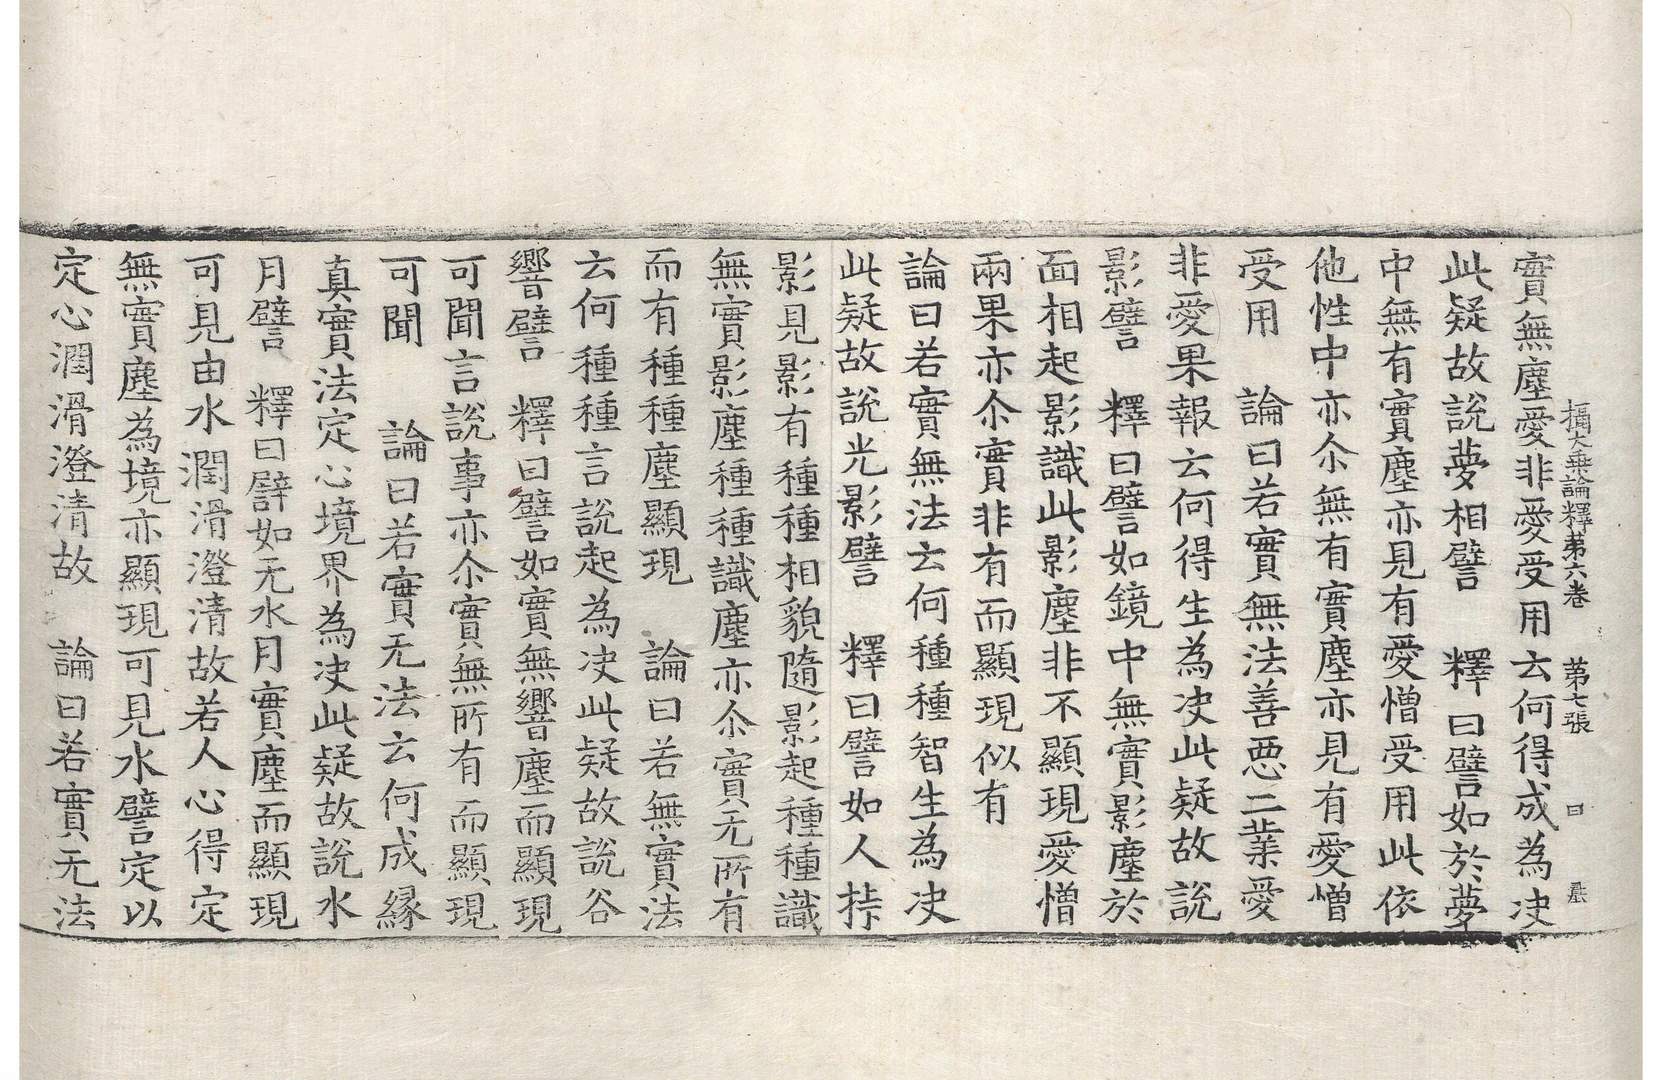 攝大乗論釋第六卷　第七張　曰
實無塵愛非愛受用云何得成為决
此疑故說夢相譬　釋曰譬如於夢
中無有實塵亦見有愛憎受用此依
他性中亦尒無有實塵亦見有愛憎
受用　論曰若實無法善惡二業愛
非愛果報云何得生為决此疑故說
影譬　釋曰譬如鏡中無實影塵於
面相起影識此影塵非不顯現愛憎
兩果亦尒實非有而顯現似有
論曰若實無法云何種種智生為决
此疑故說光影譬　釋曰譬如人挊
影見影有種種相貌隨影起種種識
無實影塵種種識塵亦尒實无所有
而有種種塵顯現　論曰若無實法
云何種種言說起為决此疑故說谷
響譬　釋曰譬如實無響塵而顯現
可聞言說事亦尒實無所有而顯現
可聞　論曰若實无法云何成緣
真實法定心境界為决此疑故說水
月譬　釋曰譬如无水月實塵而顯現
可見由水潤滑澄清故若人心得定
無實塵為境亦顯現可見水譬定以
定心潤滑澄清故　論曰若實无法